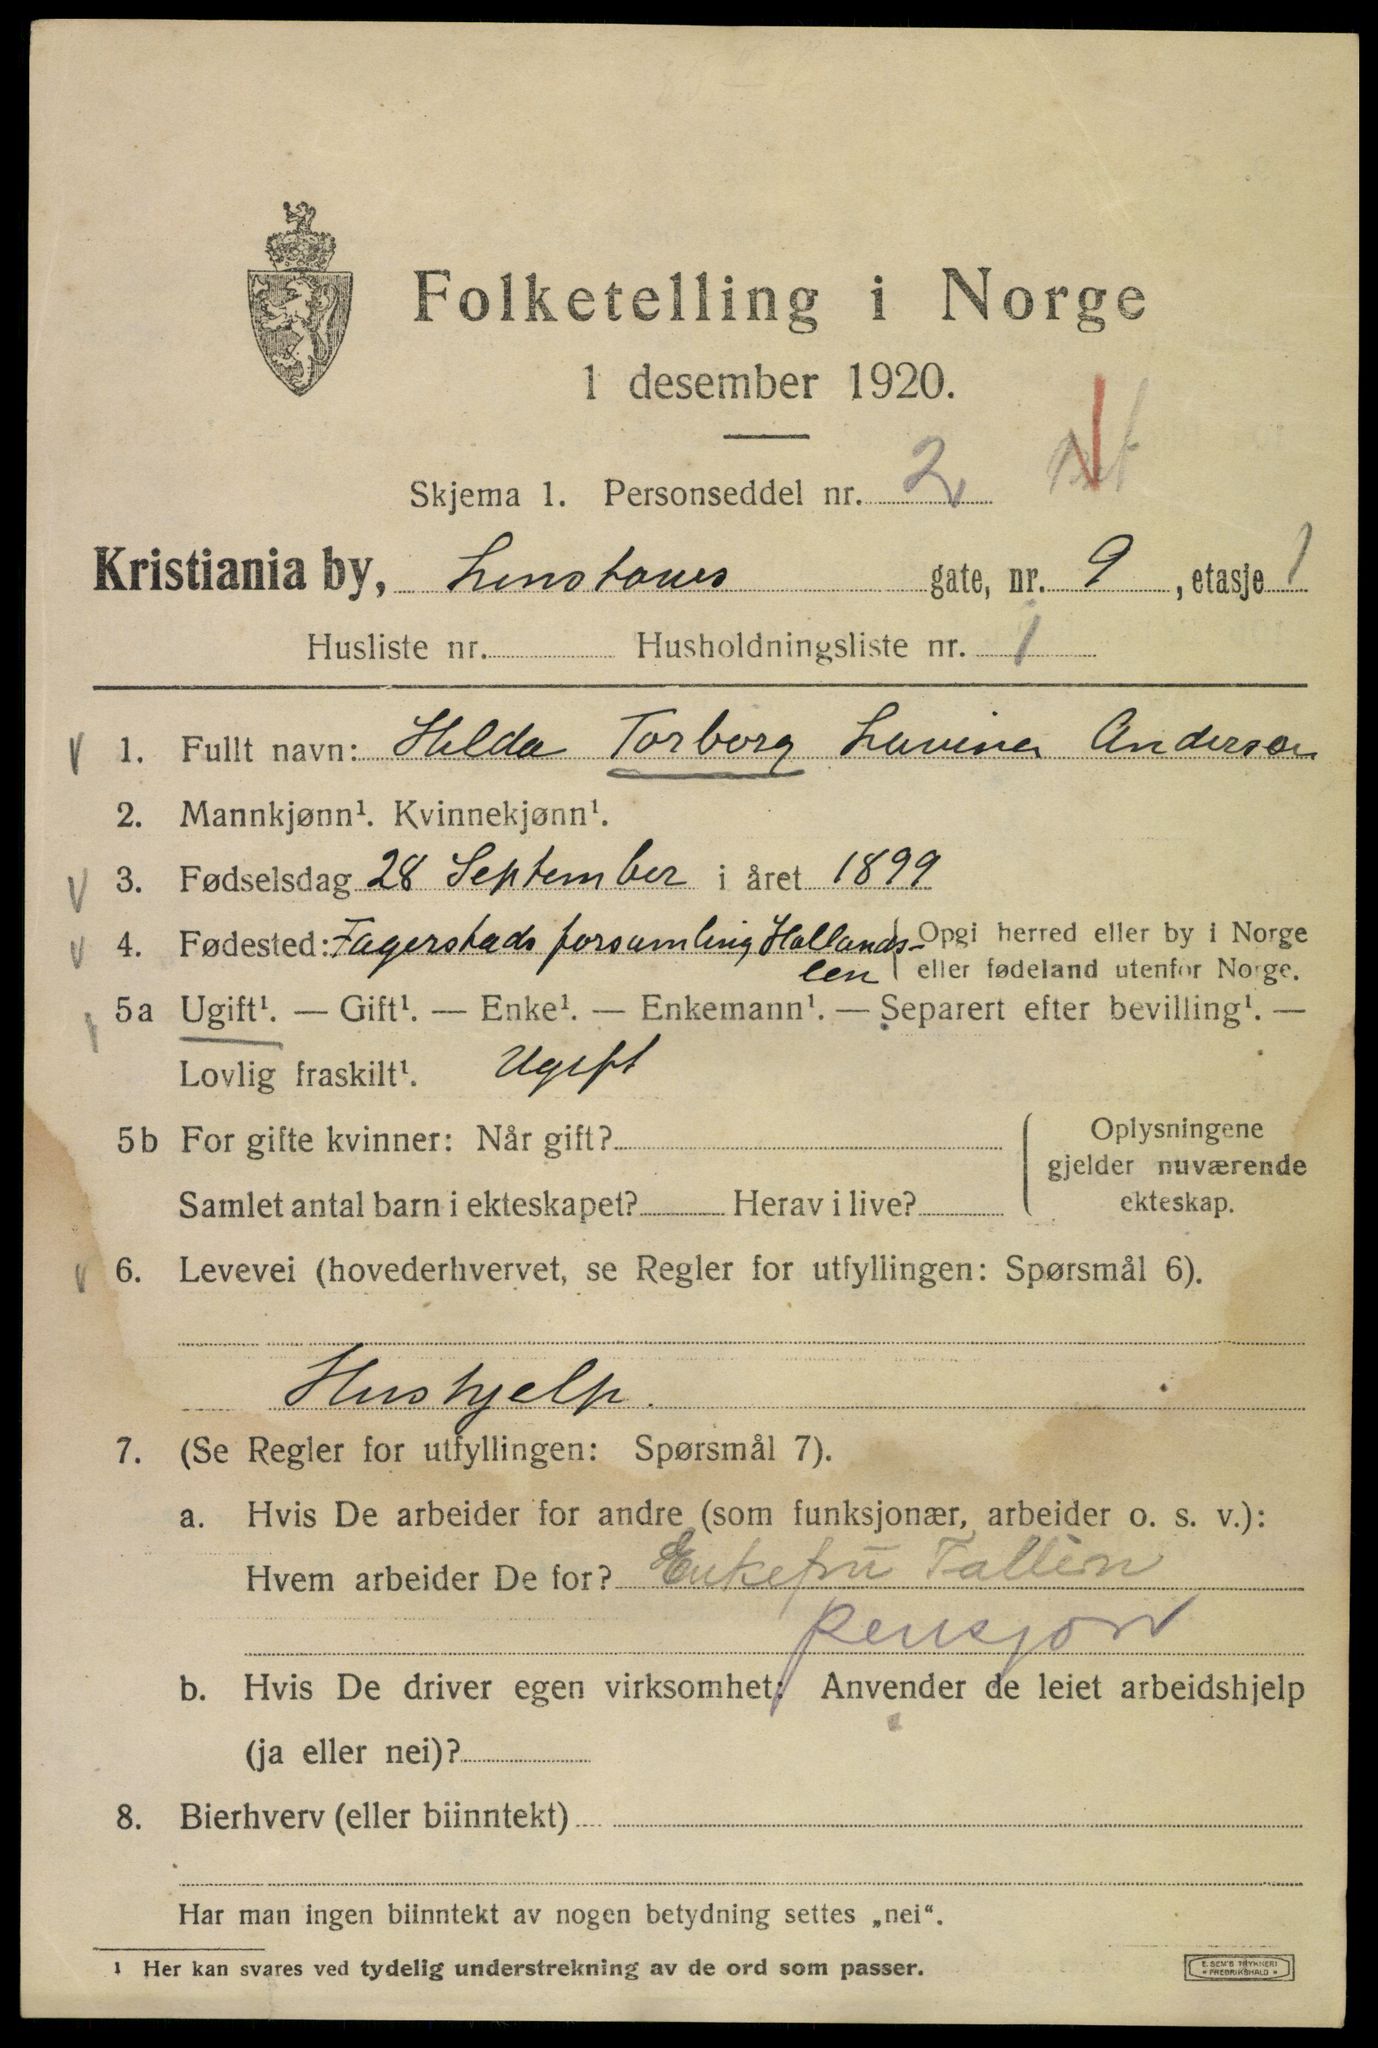 Folketelling i Norge
1 desember 1920.
Skjema 1. Personseddel nr. 2
Kristiania by, Linstows gate, nr. 9, etasje 1
Husliste nr. Husholdningsliste nr. 1
1. Fullt navn: Hilda Torborg Lovina Anderson
2. Mannkjønn¹. Kvinnekjønn¹.
3. Fødselsdag 28 September i året 1899
4. Fødested: Fagerstads forsamling Hallands- Opgi herred eller by i Norge
len eller fødeland utenfor Norge.
5a Ugift¹. — Gift¹. — Enke¹. — Enkemann¹. — Separert efter bevilling¹. —
Lovlig fraskilt¹. Ugift
5b For gifte kvinner: Når gift? Oplysningene
gjelder nuværende
Samlet antal barn i ekteskapet? Herav i live? ekteskap.
6. Levevei (hovederhvervet, se Regler for utfyllingen: Spørsmål 6).
Hushjelp.
7. (Se Regler for utfyllingen: Spørsmål 7).
a. Hvis De arbeider for andre (som funksjonær, arbeider o. s. v.):
Hvem arbeider De for? Enkefru Tallén
pensjon
b. Hvis De driver egen virksomhet: Anvender de leiet arbeidshjelp
(ja eller nei)?
8. Bierhverv (eller biinntekt)
Har man ingen biinntekt av nogen betydning settes „nei“.
¹ Her kan svares ved tydelig understrekning av de ord som passer.
E. SEM'S TRYKKERI
FREDRIKSHALD